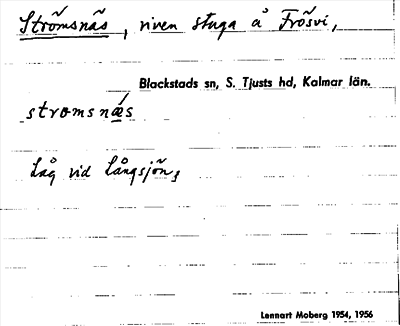 Strömsnäs, riven stuga å Frösvi,
Blackstads sn, S. Tjusts hd, Kalmar län.
strømsnǽs
Låg vid Långsjön.
Lennart Moberg 1954, 1956